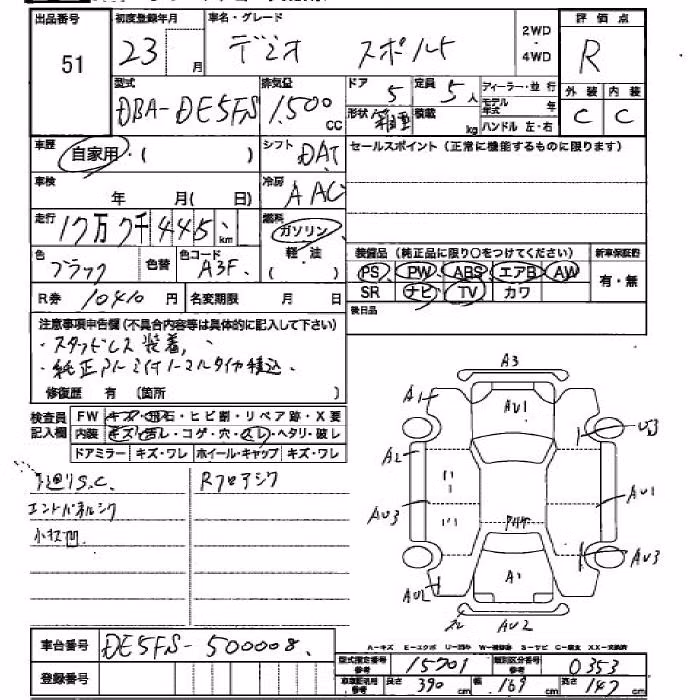 出品番号 初度登録年月 車名・グレード 2WD 評価点
51 23 月 デミオ スポルト 4WD R
型式 排気量 ドア 定員 ディーラー・並行 外装 内装
DBA-DE5FS 1,500 cc 5 5人 モデル年式 年 C C
形状 箱型 積載 kg ハンドル 左・右
車歴 自家用・( ) シフト DAT セールスポイント(正常に機能するものに限ります)
車検 年 月( 日) 冷房 AAC
走行 17万7千445 km 燃料 ガソリン
軽・油
( )
色 ブラック 色替 色コード A3F
装備品(純正品に限り○をつけてください) 新車保証書
PS PW ABS エアB AW 有・無
SR ナビ TV カワ
R券 10410円 名変期限 月 日 後日品
注意事項申告欄(不具合内容等は具体的に記入して下さい)
・スタッドレス装着、
・純正アルミ付ノーマルタイヤ積込.
修復歴 有 〔箇所 〕
検査員記入欄 FW キズ・飛石・ヒビ割・リペア跡・X要
内装 キズ・汚レ・コゲ・穴・スレ・ヘタリ・破レ
ドアミラー キズ・ワレ ホイール・キャップ キズ・ワレ
S.C. Rフロアシワ
エンドパネルシワ
小キズ凹
A3
A1 AU1 U3
A2
AU3 AU1
A1 AU3
AU2 AU2
A-キズ E-エクボ U-凹み W-補修跡 S-サビ C-腐食 XX-交換済
車台番号 DE5FS-500008
型式指定番号 参考 15701 類別区分番号 参考 0353
登録番号
長さ 390 cm 幅 169 cm 高さ 147 cm